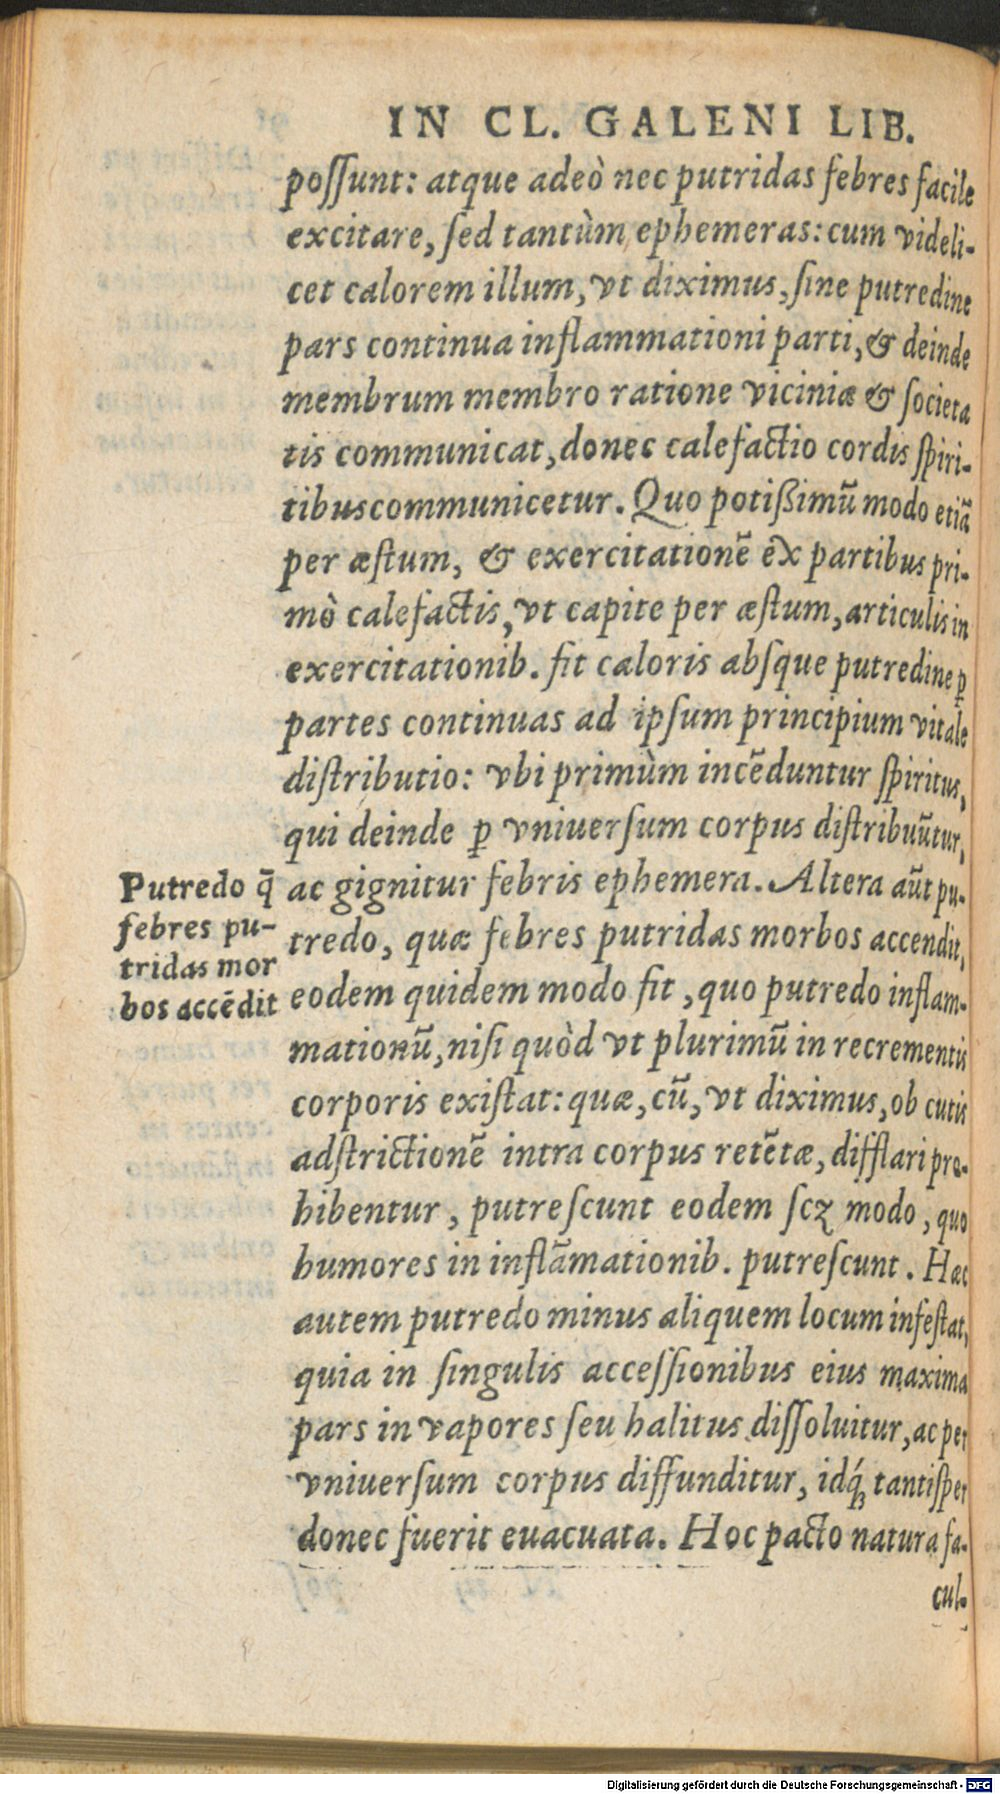 IN CL. GALENI LIB.
poſſunt: atque adeò nec putridas febres facile
excitare, ſed tantùm ephemeras: cum videli-
cet calorem illum, vt diximus, ſine putredine
pars continua inflammationi parti, & deinde
membrum membro ratione viciniæ & ſocieta
tis communicat, donec calefactio cordis ſpiri-
tibus communicetur. Quo potiſsimũ modo etiã
per æſtum, & exercitationẽ ex partibus pri-
mò calefactis, vt capite per æſtum, articulis in
exercitationib. fit caloris abſque putredine ꝑ
partes continuas ad ipſum principium vitale
diſtributio: vbi primùm incẽduntur ſpiritus,
qui deinde ꝑ vniuerſum corpus diſtribuũtur,
ac gignitur febris ephemera. Altera aũt pu-
tredo, quæ febres putridas morbos accendit,
eodem quidem modo fit, quo putredo inflam-
mationũ, niſi quòd vt plurimũ in recrementis
corporis exiſtat: quæ, cũ, vt diximus, ob cutis
adſtrictionẽ intra corpus retẽtæ, difflari pro-
hibentur, putreſcunt eodem ſcꝫ modo, quo
humores in inflãmationib. putreſcunt. Hæc
autem putredo minus aliquem locum infeſtat,
quia in ſingulis acceſſionibus eius maxima
pars in vapores ſeu halitus diſſoluitur, ac per
vniuerſum corpus diffunditur, idq́ꝫ tantiſper
donec fuerit euacuata. Hoc pacto natura fa-
cul-
Putredo q̃
febres pu-
tridas mor
bos accẽdit
Digitalisierung gefördert durch die Deutsche Forschungsgemeinschaft - DFG